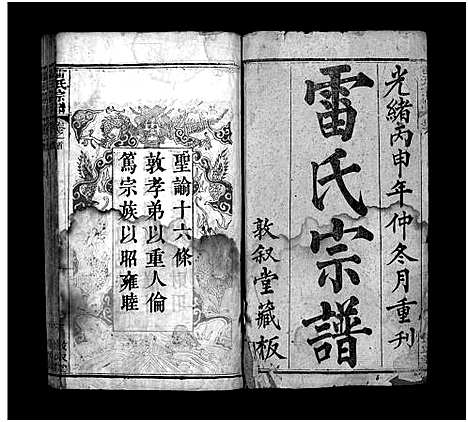 光緒丙申年仲冬月重刊
雷氏宗譜
敦叙堂藏板
聖諭十六條
敦孝弟以重人倫
篤宗族以昭雍睦